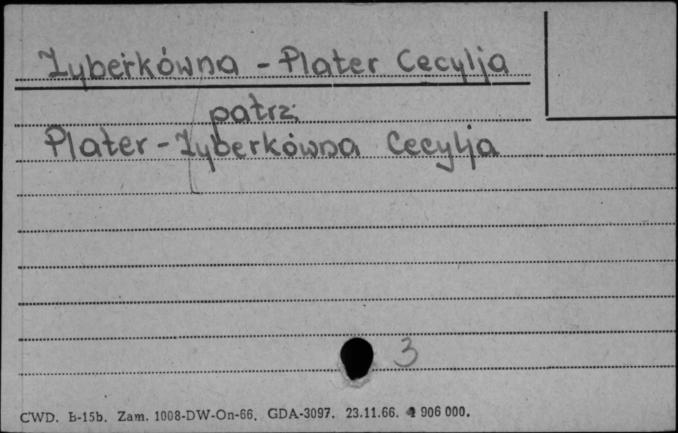 Zyberkówna - Plater Cecylja
patrz
Plater - Zyberkówna Cecylja
3
CWD. B-15b. Zam. 1008-DW-On-66. GDA-3097. 23.11.66. 906 000.